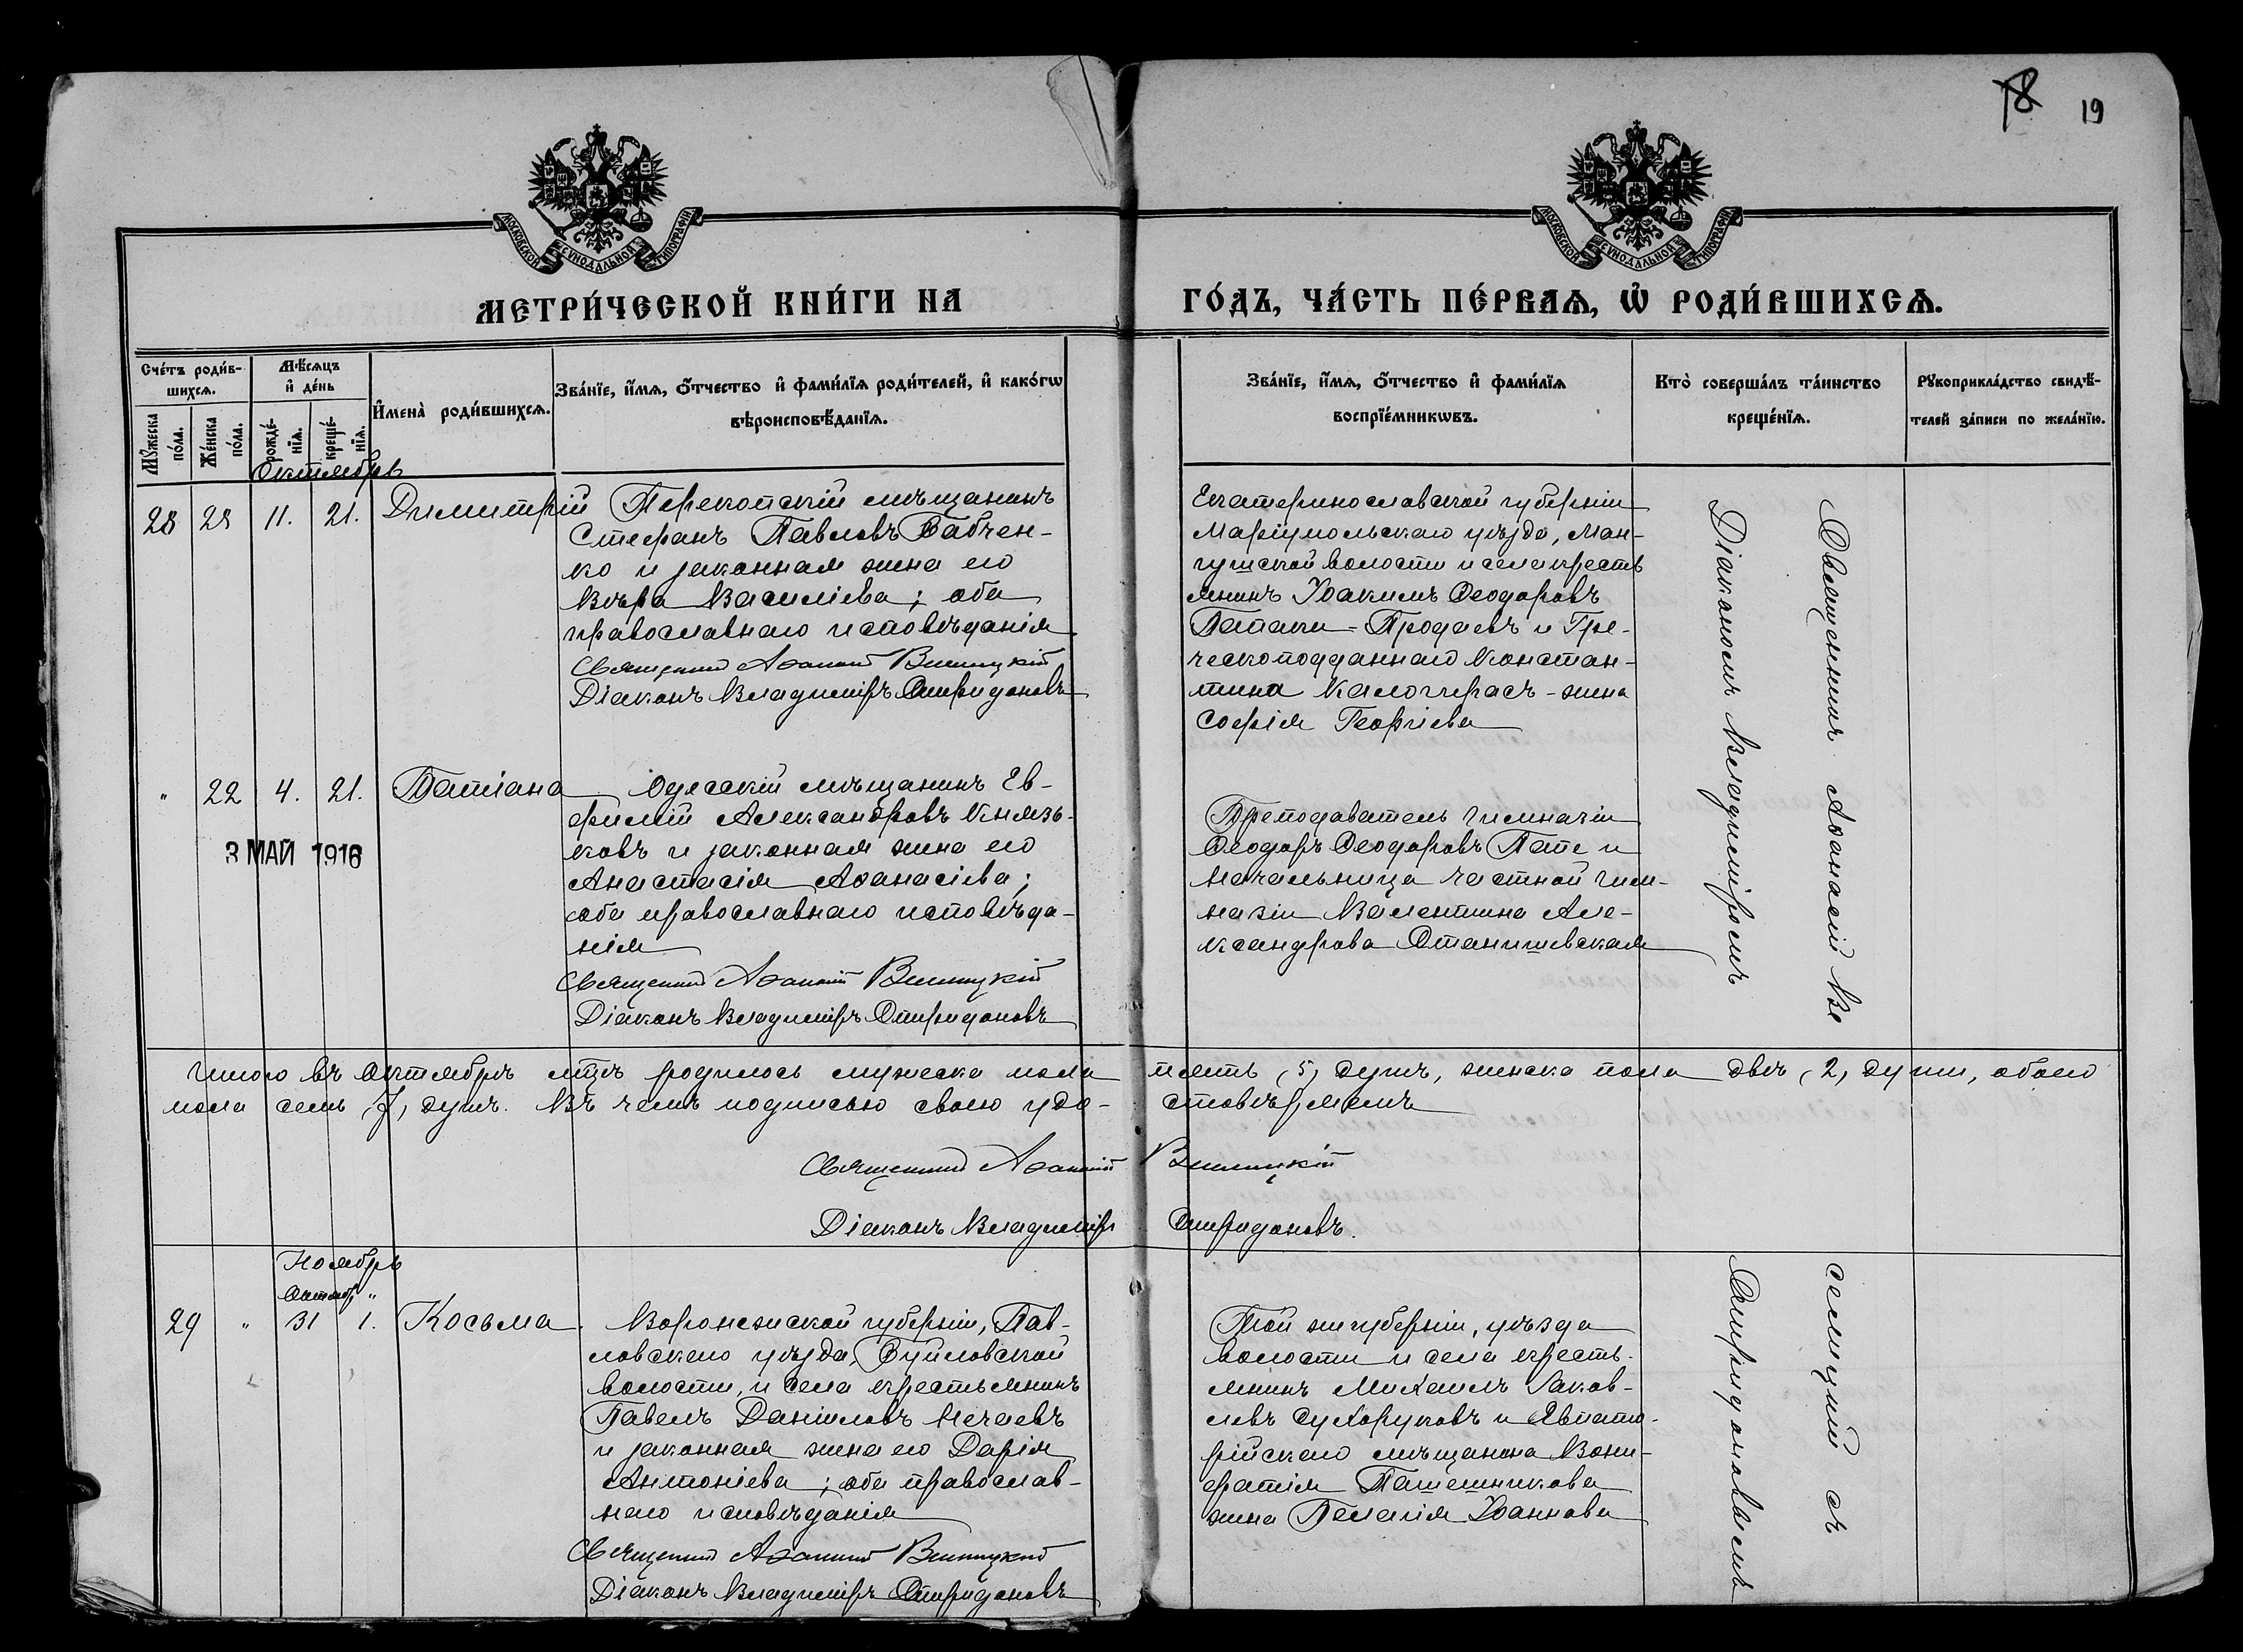 18 19
МОСКОВСКОЙ СУНОДАЛЬНОЙ ТИПОГРАФІИ
МОСКОВСКОЙ СУНОДАЛЬНОЙ ТИПОГРАФІИ
МЕТРИ́ЧЕСКОЙ КНИ́ГИ НА ГО́ДЪ, ЧА́СТЬ ПЕ́РВАѦ, Ѡ҆ РОДИ́ВШИХСѦ.
Сче́тъ роди́в-
шихсѧ.
Мѹ́жеска по́ла.
Же́нска по́ла.
Мѣ́сѧцъ
и҆ де́нь
рожде́-
нїѧ.
креще́-
нїѧ.
И҆мена̀ роди́вшихсѧ.
Зва́нїе, и҆́мѧ, ѻ҆́тчество и҆ фами́лїѧ роди́телей, и҆ како́гѡ
вѣроисповѣ́данїѧ.
Зва́нїе, и҆́мѧ, ѻ҆́тчество и҆ фами́лїѧ
воспрїе́мникѡвъ.
Кто̀ соверша́лъ та́инство
креще́нїѧ.
Рѹкоприкла́дство свидѣ́-
телей за́писи по жела́нїю.
Октябрь
28 28 11. 21. Димитрій
Перекопскій мѣщанинъ
Стефанъ Павловъ Бабчен-
ко и законная жена его
Вѣра Василіева; оба
православнаго исповѣданія
Священникъ Аѳанасій Винницкій
Діаконъ Владиміръ Спиридоновъ
Екатеринославской губерніи
Маріупольскаго уѣзда, Ман-
гушской волости и села кресть
янинъ Іоакимъ Ѳеодоровъ
Папаки-Продаевъ и Гре-
ческоподданнаго Констан-
тина Калогерасъ-жена
Софія Георгіева
" 22 4. 21. Татіана
3 МАЙ 1916
Одесскій мѣщанинъ Ев-
фимій Александровъ Князь-
ковъ и законная жена его
Анастасія Аѳанасіева;
оба православнаго исповѣда-
нія
Священникъ Аѳанасій Винницкій
Діаконъ Владиміръ Спиридоновъ
Преподаватель гимназіи
Ѳеодоръ Ѳеодоровъ Папе и
Начальница частной гим-
назіи Валентина Але-
ксандрова Станишевская
Священникъ Аѳанасій Ве
Діакономъ Владиміромъ
Итого въ Октябрѣ мцѣ родилось мужеска пола пять (5) душъ, женска пола двѣ (2) души, обоего
пола семь (7) душъ. Въ чемъ подписью своею удо-стовѣряемъ
Священникъ Аѳанасій Винницкій
Діаконъ Владиміръ Спиридоновъ.
Ноябрь
Октябр. "
29 " 31 1. Косьма
Воронежской губерніи, Пав-
ловскаго уѣзда, Буйловской
волости, и села крестьянинъ
Павелъ Даніиловъ Нечаевъ
и законная жена его Дарія
Антоніева; оба православ-
наго исповѣданія
Священникъ Аѳанасій Винницкій
Діаконъ Владиміръ Спиридоновъ
Той же губерніи, уѣзда
волости и села кресть-
янинъ Михаилъ Іаков-
левъ Сухоруковъ и Евпато-
рійскаго мѣщанина Вони-
фатія Пашенникова
жена Пелагія Іоаннова
селицкій съ
Спиридоновымъ